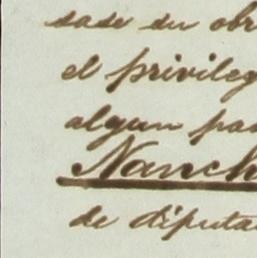 sase su obr
el privileg
algun pas
Nanch
de diputa